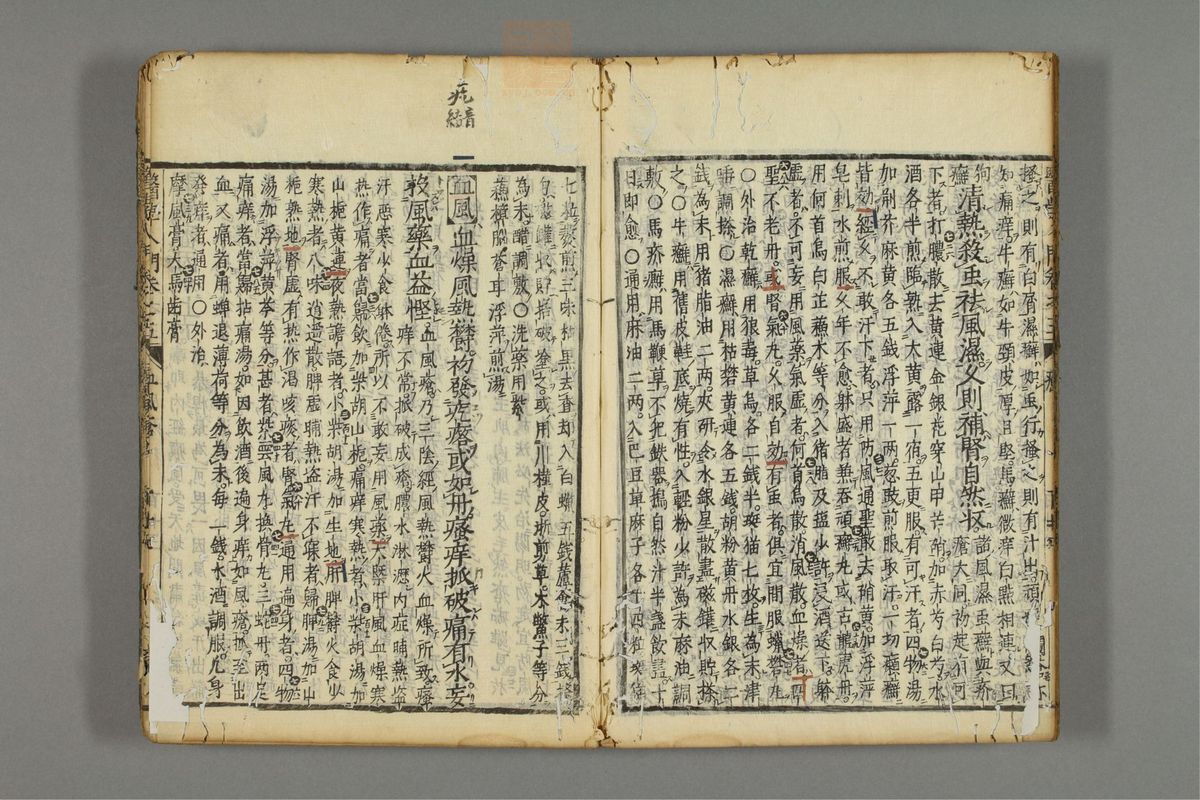 搔之則有白屑濕癬如虫行搔之則有汁出頑
知痛痒牛癬如牛頸皮厚且堅馬癬微痒白點相連又曰
狗癬清熱殺虫祛風濕久則補腎自然收諸風濕虫癬與疥
下者打膿散去黃連金銀花穿山甲芒硝加赤芍白芍水
酒各半煎臨熟入大黃露一宿五更服有可汗者四物湯
加荊芥麻黃各五錢浮萍一兩葱豉煎服取汗一切癬癩
皆効經久不敢汗下者只用防風通聖散去硝黃加浮萍
皂刺水煎服久年不愈躰盛者兼吞頑癬丸或古龍虎丹
用何首烏白芷蘇木等分入猪脂及塩少許浸酒送下躰
虛者不可妄用風藥氣虛者何首烏散消風散血燥者四
聖不老丹或腎氣丸久服自効有虫者俱宜間服蠟礬丸
〇外治乾癬用狼毒草烏各二錢半斑猫七枚生為末津
唾調搽〇濕癬用枯礬黃連各五錢胡粉黃丹水銀各二
錢為末用猪脂油二兩夾研令水銀星散盡磁鑵收貯搽
之〇牛癬用舊皮鞋底燒存性入輕粉少許為末麻油調
敷〇馬疥癬用馬鞭草不犯鉄器搗自然汁半盞飲盡十
日即愈〇通用麻油二兩入巴豆蓖麻子各十四粒
七粒熬煎三味枯黑去渣却入白蠟五錢蘆薈末三錢
磁罐收貯搽破塗之或用川槿皮斑剪草木鱉子等分
為末醋調敷〇洗藥用紫
蘇樟腦蒼耳浮萍煎湯
疙音紇
血風血燥風熱欝初發疙瘩或如丹瘙痒抓破痛有水妄
投風藥血益慳血風瘡乃三陰經風熱欝火血燥所致瘙
痒不常抓破成瘡膿水淋瀝内症晡熱盜
汗惡寒少食躰倦所以不敢妄用風藥大槩肝風血燥寒
熱作痛者當歸飲加柴胡山梔痛痒寒熱者小柴胡湯加
山梔黃連夜熱譫語者小柴胡湯加生地脾欝火食少
寒熱者八味逍遥散脾虛晡熱盜汗不寐者歸脾湯加山
梔熱地腎虛有热作渴咳痰者腎氣丸通用遍身者四物
湯加浮萍黃芩等分甚者紫雲風丸換骨丸三蛇丹兩足
痛痒者當歸拈痛湯如因飲酒後遍身痒如風瘡抓至出
血又痛者用蟬退薄荷等分為末每一錢水酒調服凡身
発痒者通用〇外治
摩風膏大馬齒膏